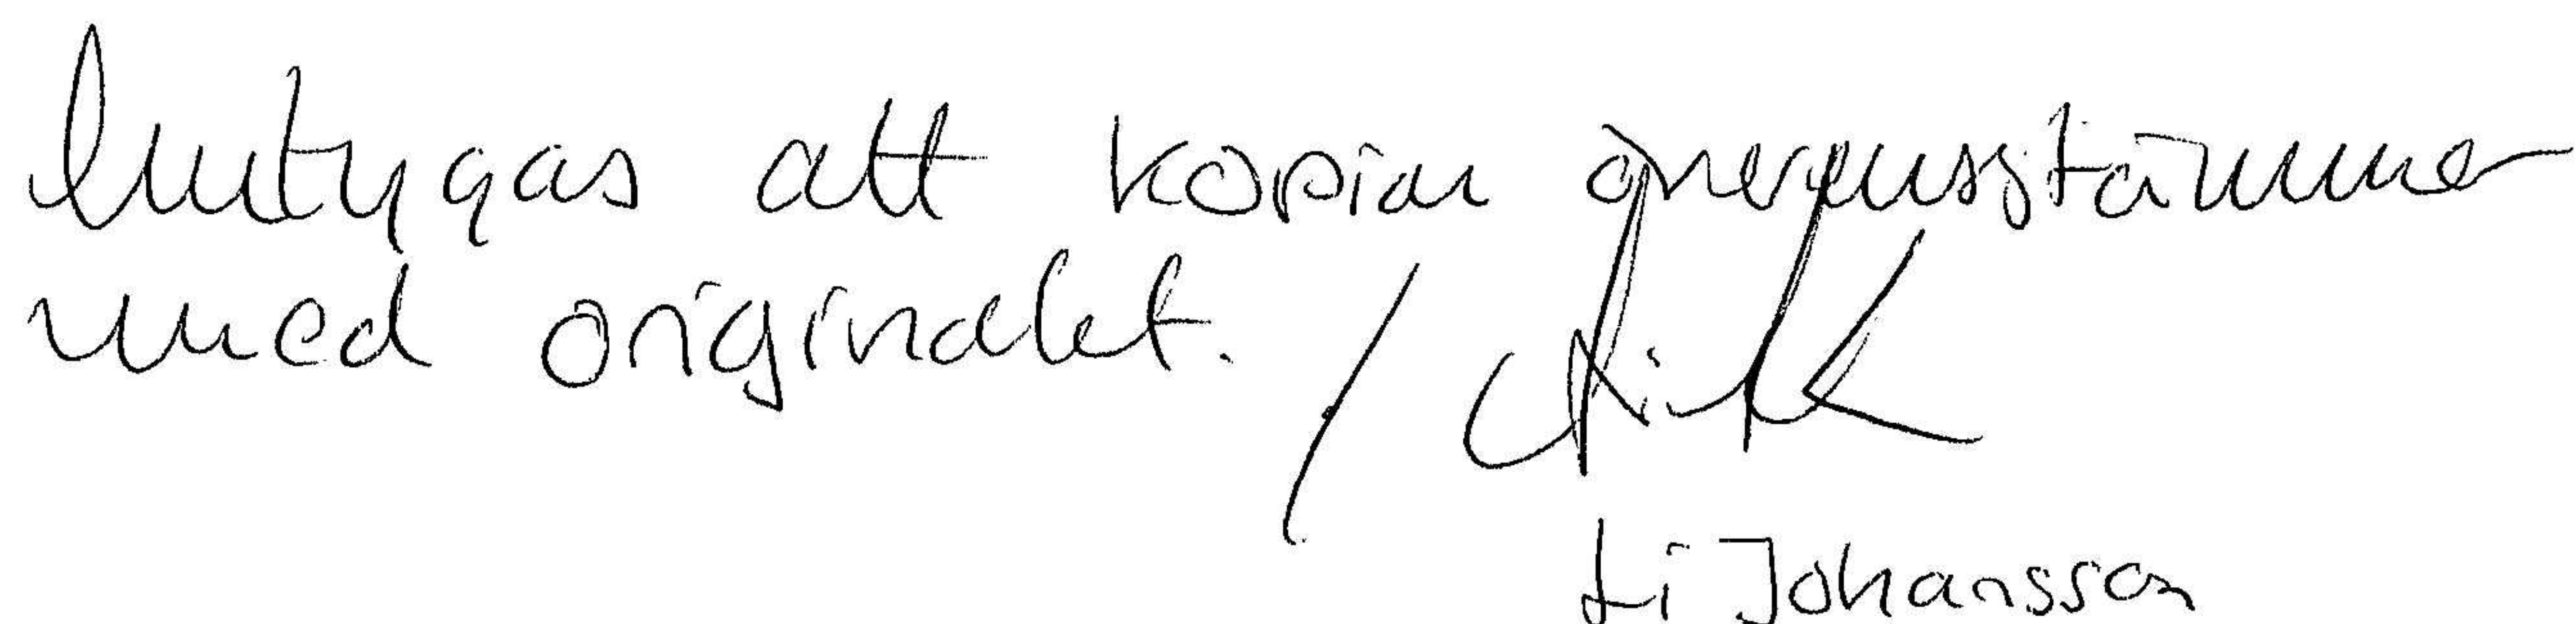 Intygas att kopian överensstämmer
med originalet. /
Li Johansson